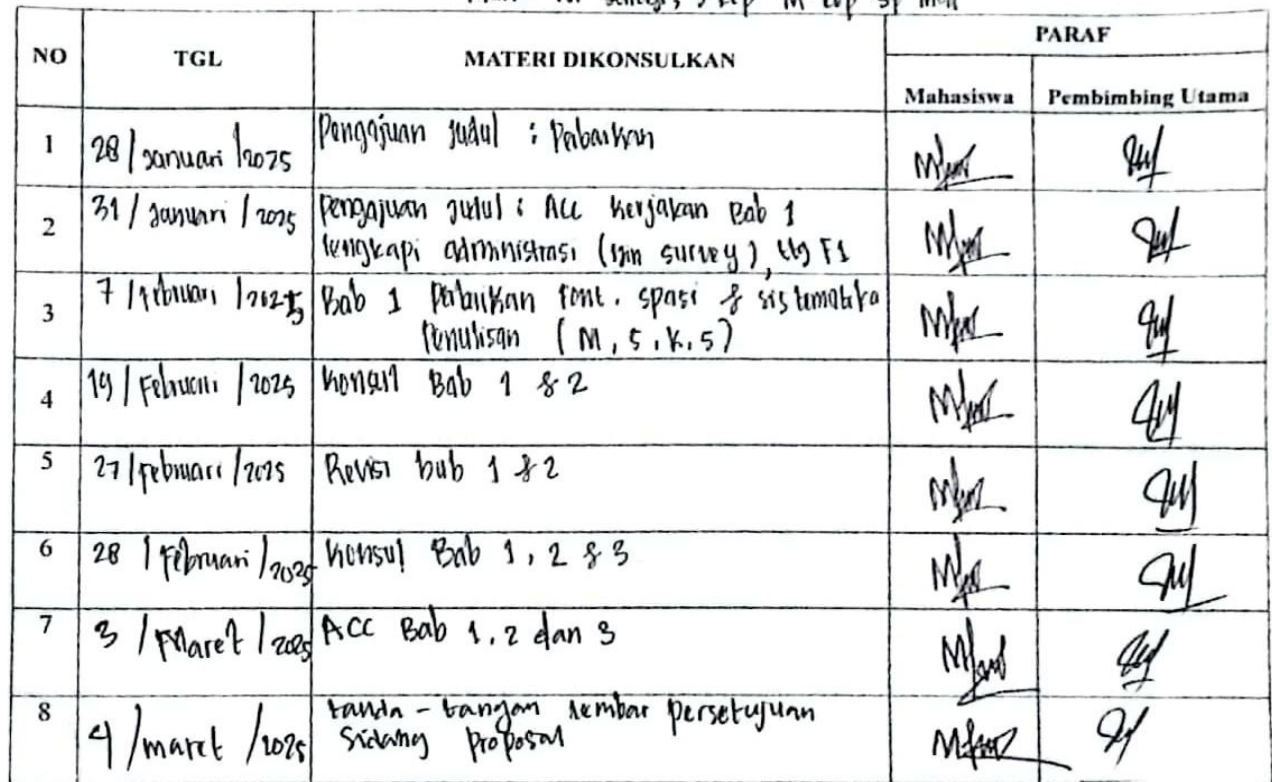 NO TGL MATERI DIKONSULKAN PARAF
Mahasiswa Pembimbing Utama
1 28 / Januari / 2025 Pengajuan Judul : Perbaikan
2 31 / Januari / 2025 Pengajuan Judul : Acc kerjakan Bab 1
lengkapi administrasi (izin survey), ttg F1
3 7 / Februari / 2025 Bab 1 Perbaikan font, spasi & sistematika
Penulisan (M, S, K, S)
4 19 / Februari / 2025 Konsul Bab 1 & 2
5 27 / Februari / 2025 Revisi bab 1 & 2
6 28 / Februari / 2025 Konsul Bab 1, 2 & 3
7 3 / Maret / 2025 ACC Bab 1, 2 dan 3
8 4 / maret / 2025 tanda - tangan lembar persetujuan
Sidang Proposal